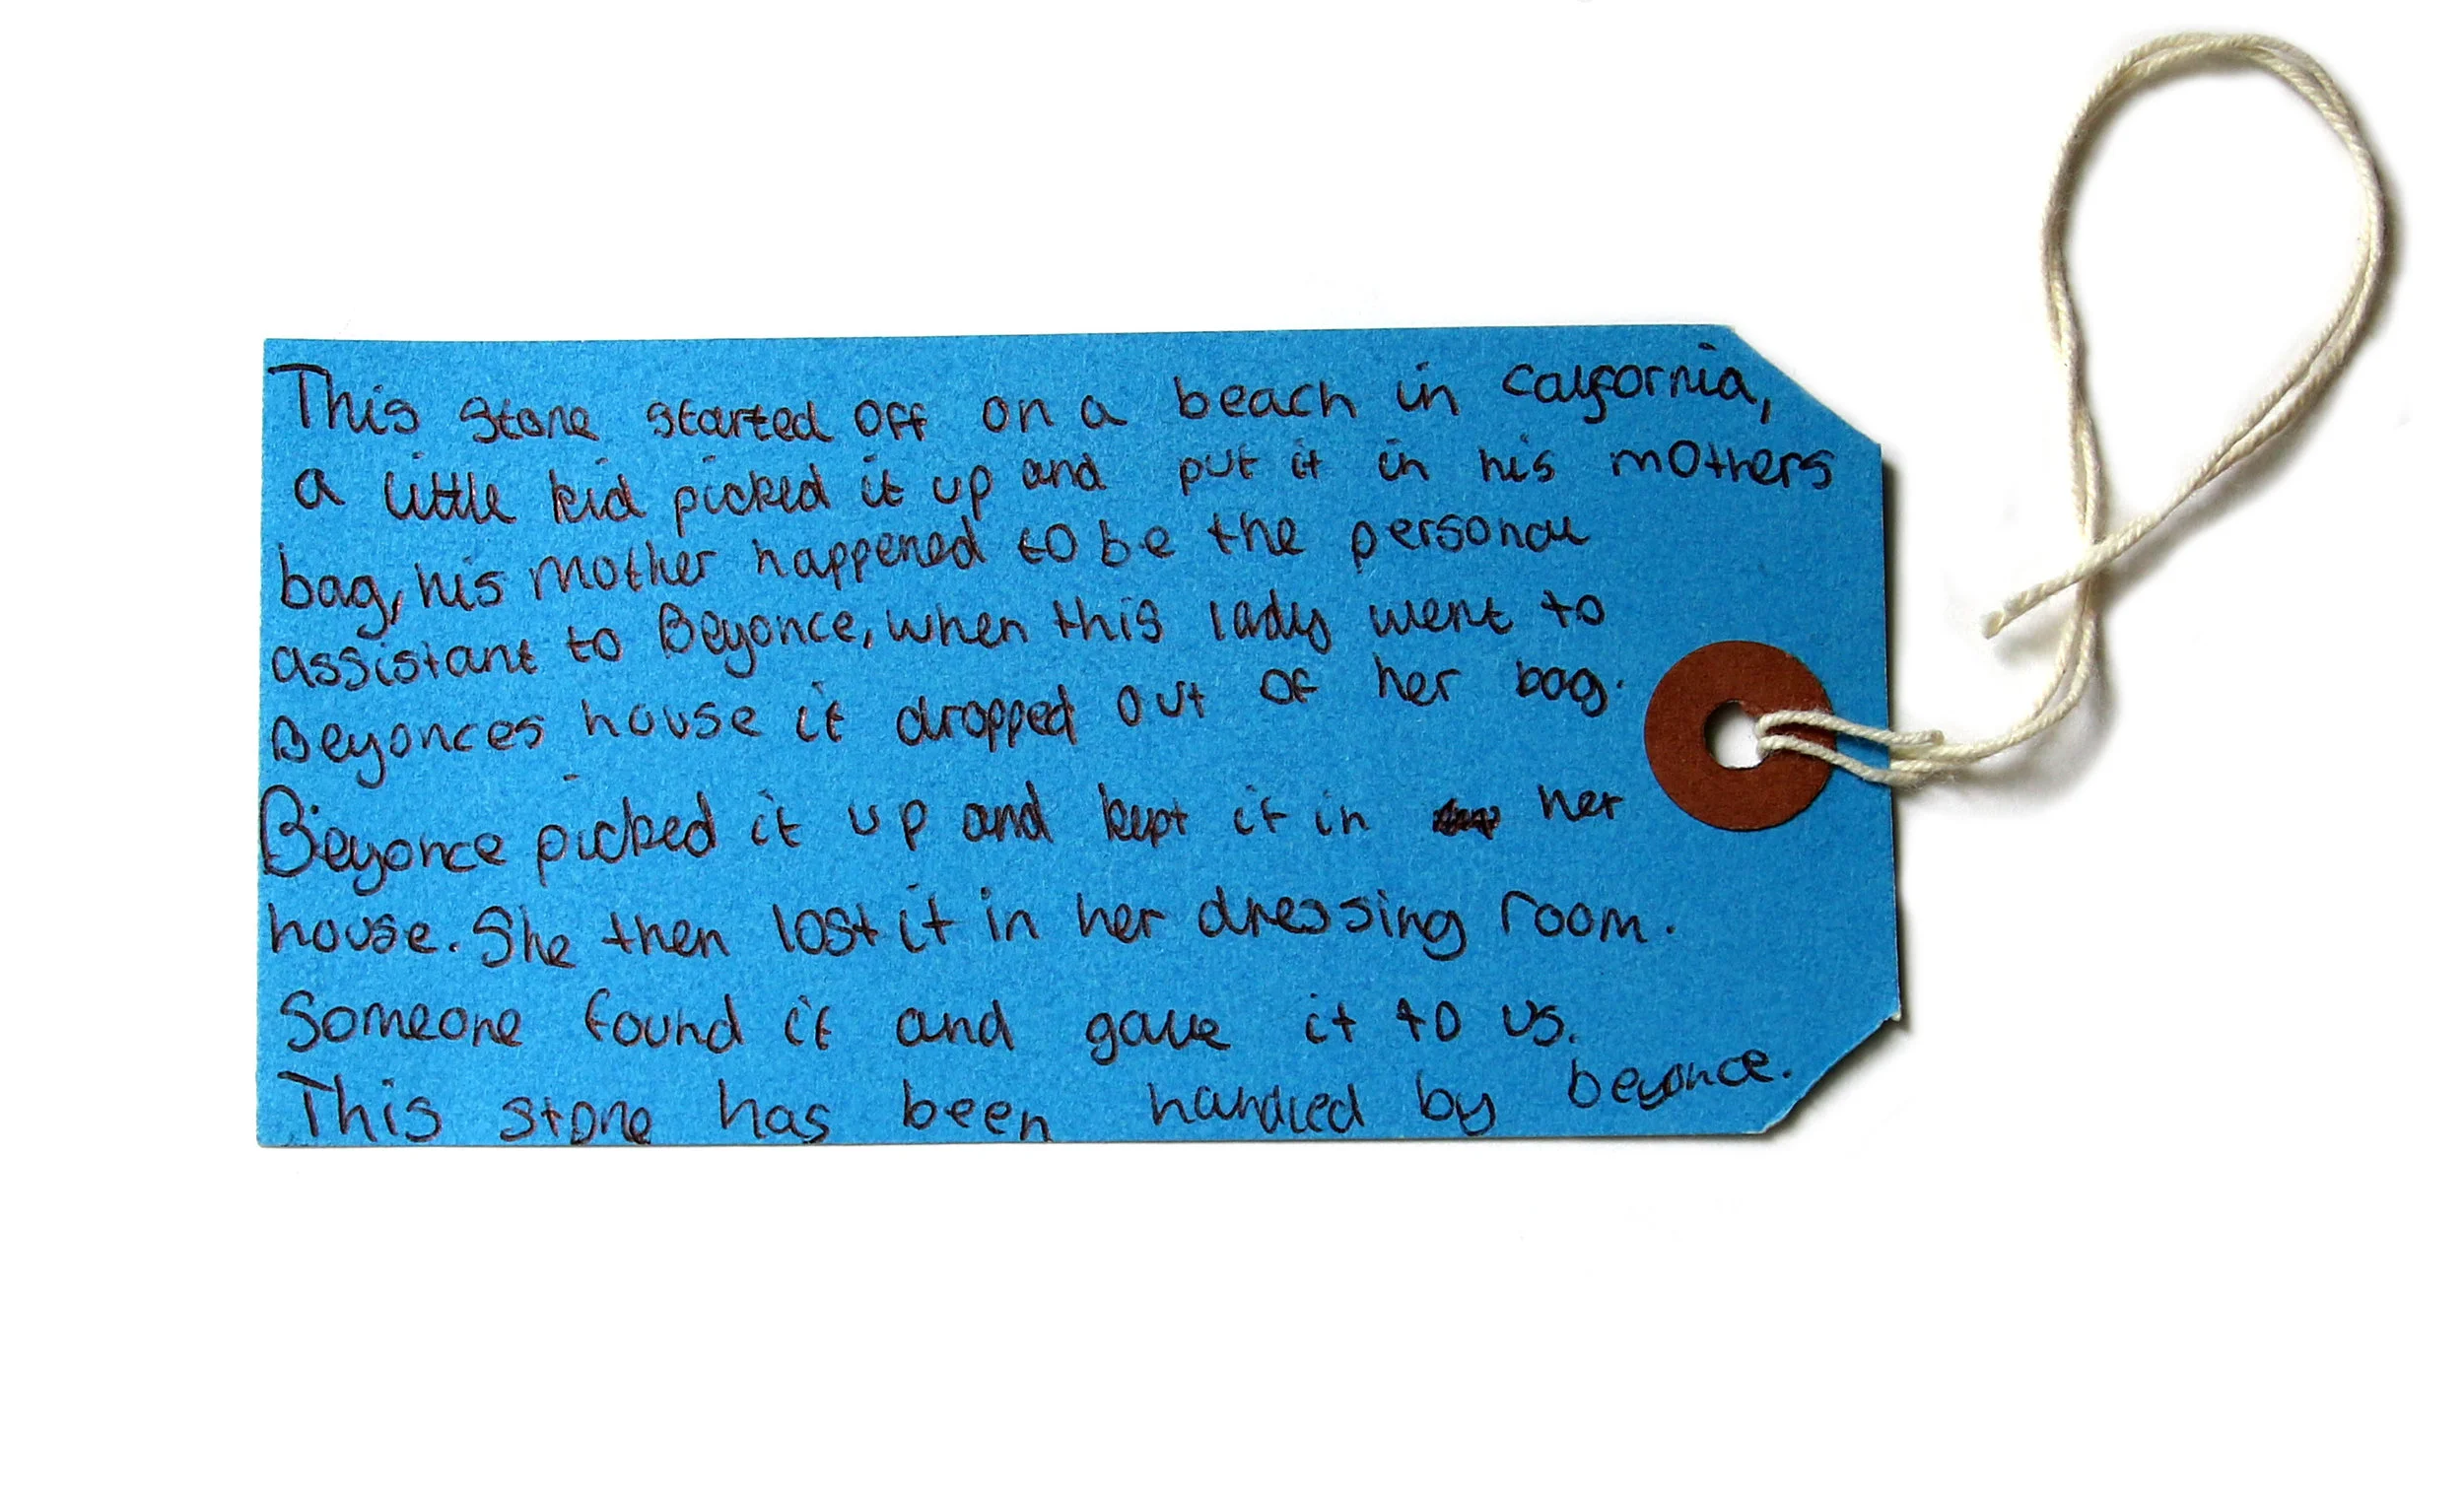 This stone started off on a beach in California,
a little kid picked it up and put it in his mothers
bag, his mother happened to be the personal
assistant to Beyonce, when this lady went to
Beyonces house it dropped out of her bag.
Beyonce picked it up and kept it in her
house. She then lost it in her dressing room.
Someone found it and gave it to us.
This stone has been handled by beyonce.